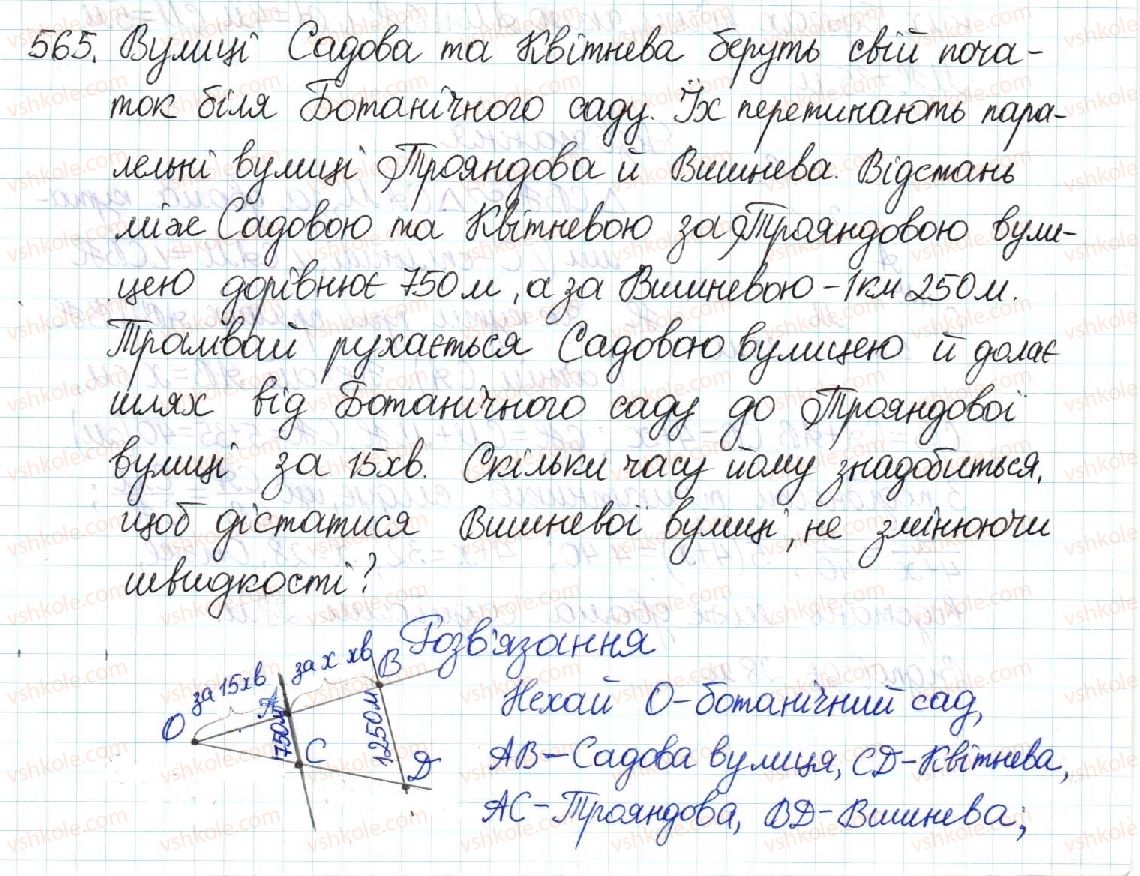 565. Вулиці Садова та Квітнева беруть свій поча-
ток біля Ботанічного саду. Їх перетинають пара-
лельні вулиці Трояндова й Вишнева. Відстань
між Садовою та Квітневою за Трояндовою вули-
цею дорівнює 750 м, а за Вишневою – 1 км 250 м.
Трамвай рухається Садовою вулицею й долає
шлях від Ботанічного саду до Трояндової
вулиці за 15хв. Скільки часу йому знадобиться,
щоб дістатися Вишневої вулиці, не змінюючи
швидкості?
Розв'язання
за 15хв
за х хв
O
A
B
C
D
750м
1250м
Нехай О-ботанічний сад,
АВ – Садова вулиця, CD – Квітнева,
АС – Трояндова, BD – Вишнева;
vshkole.com